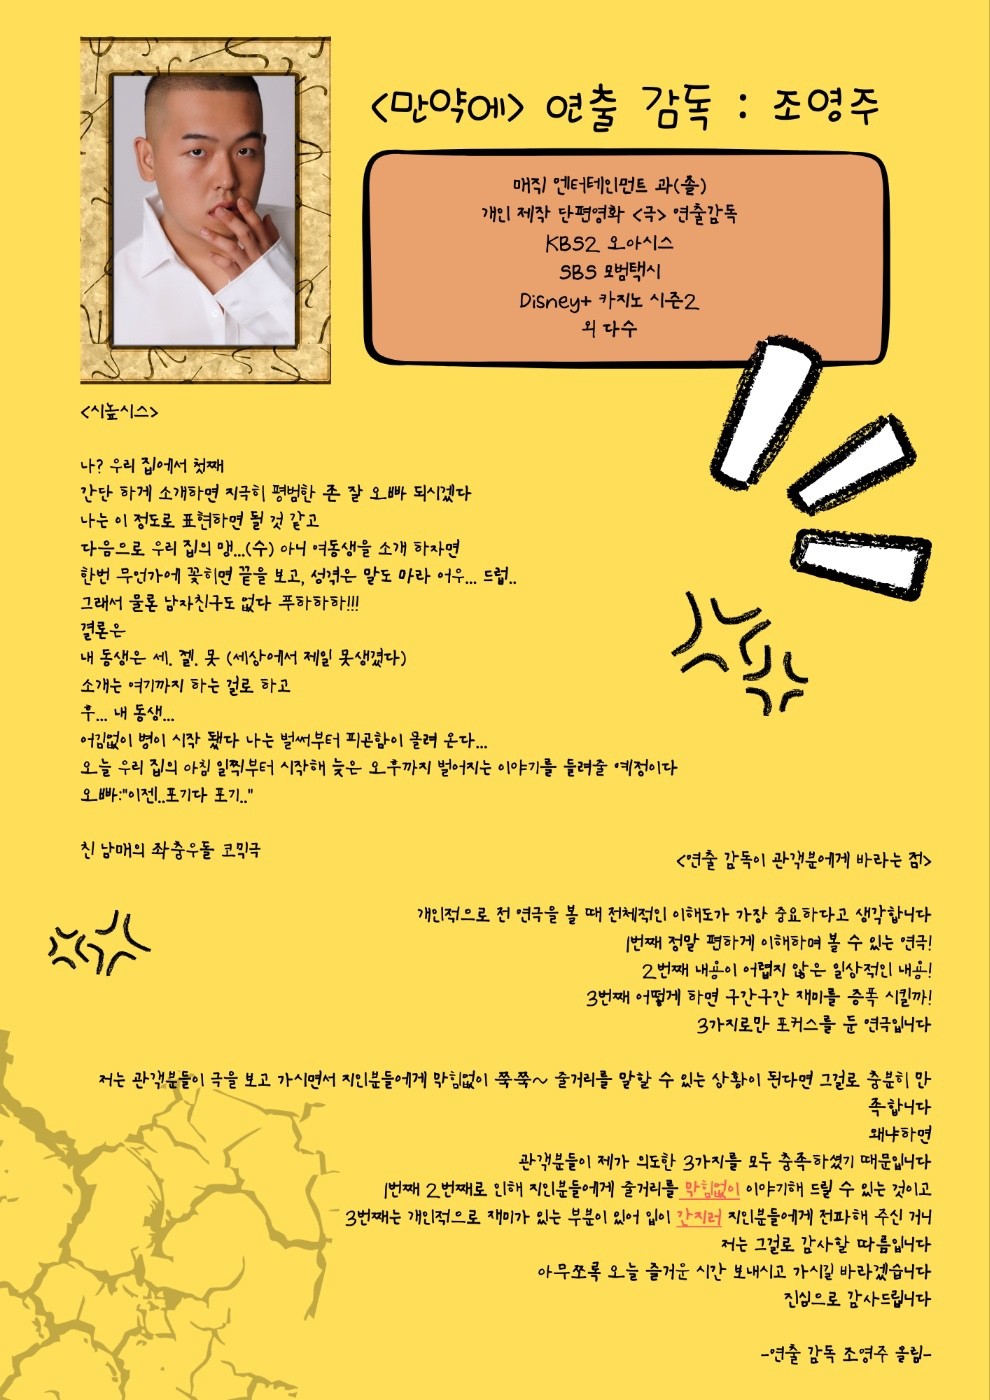 <만약에> 연출 감독 : 조영주
매직 엔터테인먼트 과(졸)
개인 제작 단편영화 <극> 연출감독
KBS2 오아시스
SBS 모범택시
Disney+ 카지노 시즌2
외 다수
<시높시스>
나? 우리 집에서 첫째
간단 하게 소개하면 지극히 평범한 존 잘 오빠 되시겠다
나는 이 정도로 표현하면 될 것 같고
다음으로 우리 집의 맹...(수) 아니 여동생을 소개 하자면
한번 무언가에 꽂히면 끝을 보고, 성격은 말도 마라 어우... 드럽..
그래서 물론 남자친구도 없다 푸하하하!!!
결론은
내 동생은 세. 젤. 못 (세상에서 제일 못생겼다)
소개는 여기까지 하는 걸로 하고
후... 내 동생...
어김없이 병이 시작 됐다 나는 벌써부터 피곤함이 몰려 온다...
오늘 우리 집의 아침 일찍부터 시작해 늦은 오후까지 벌어지는 이야기를 들려줄 예정이다
오빠:"이젠..포기다 포기.."
친 남매의 좌충우돌 코믹극
<연출 감독이 관객분에게 바라는 점>
개인적으로 전 연극을 볼 때 전체적인 이해도가 가장 중요하다고 생각합니다
1번째 정말 편하게 이해하며 볼 수 있는 연극!
2번째 내용이 어렵지 않은 일상적인 내용!
3번째 어떻게 하면 구간구간 재미를 증폭 시킬까!
3가지로만 포커스를 둔 연극입니다
저는 관객분들이 극을 보고 가시면서 지인분들에게 막힘없이 쭉-쭉~ 줄거리를 말할 수 있는 상황이 된다면 그걸로 충분히 만
족합니다
왜냐하면
관객분들이 제가 의도한 3가지를 모두 충족하셨기 때문입니다
1번째 2번째로 인해 지인분들에게 줄거리를 막힘없이 이야기해 드릴 수 있는 것이고
3번째는 개인적으로 재미가 있는 부분이 있어 입이 간지러 지인분들에게 전파해 주신 거니
저는 그걸로 감사할 따름입니다
아무쪼록 오늘 즐거운 시간 보내시고 가시길 바라겠습니다
진심으로 감사드립니다
-연출 감독 조영주 올림-